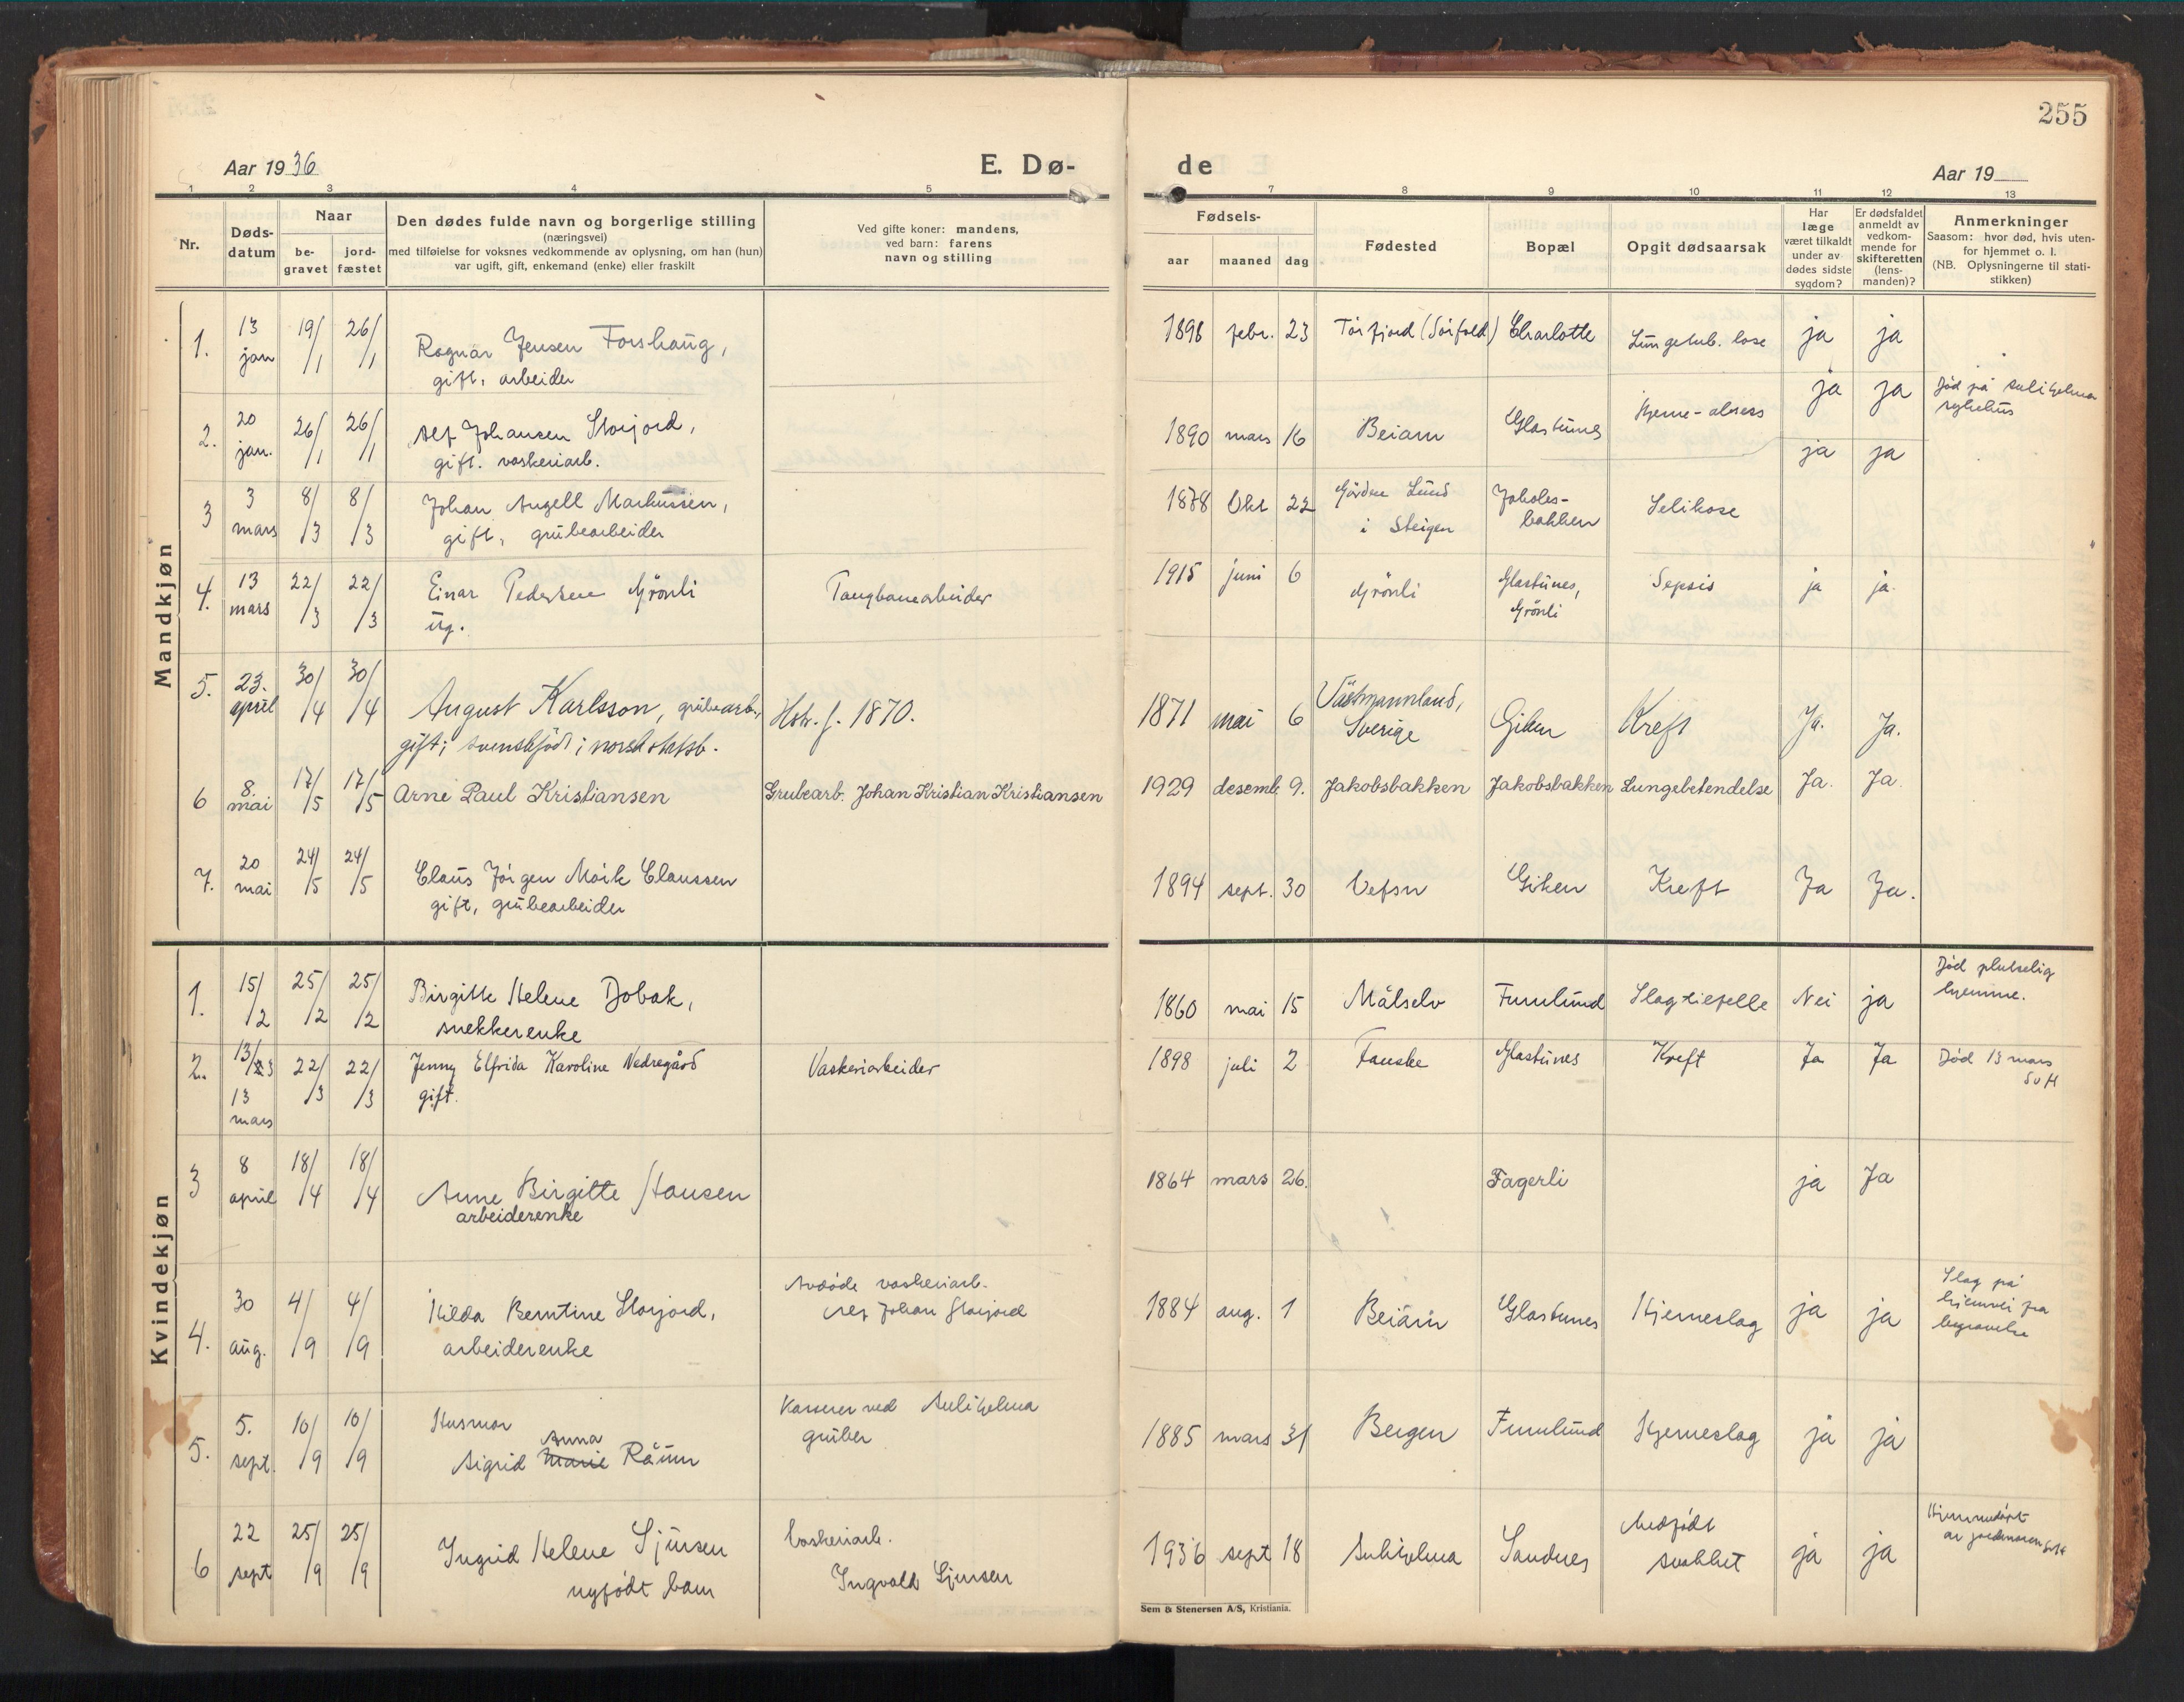 255
Aar 1936
E. Dø-
de
Aar 19
1 2 3 4 5
7 8 9 10 11 12 13
Nr.
Døds-
datum
Naar
be-
gravet
jord-
fæstet
Den dødes fulde navn og borgerlige stilling
(næringsvei)
med tilføielse for voksnes vedkommende av oplysning, om han (hun)
var ugift, gift, enkemand (enke) eller fraskilt
Ved gifte koner: mandens,
ved barn: farens
navn og stilling
Fødsels-
aar maaned dag
Fødested
Bopæl
Opgit dødsaarsak
Har
læge
været tilkaldt
under av-
dødes sidste
sygdom?
Er dødsfaldet
anmeldt av
vedkom-
mende for
skifteretten
(lens-
manden)?
Anmerkninger
Saasom: hvor død, hvis uten-
for hjemmet o. l.
(NB. Oplysningerne til stati-
stikken)
Mandkjøn
1. 13 jan 19/1 26/1 Ragnar Jensen Forshaug,
gift, arbeider
1898 febr. 23 Tørfjord (Sørfold) Charlotte Lungetub. lose ja ja
2. 20 jan. 26/1 26/1 Alf Johansen Storjord,
gift. vaskeriarb.
1890 mars 16 Beiarn Glastunes Hjerne-absess ja ja Død på Sulitjelma
sykehus
ja ja
3 3 mars 8/3 8/3 Johan Angell Markussen,
gift, grubearbeider
1878 Okt 22 Gården Lund
i Steigen
Jakobs-
bakken
Silikose
4. 13 mars 22/3 22/3 Einar Pedersen Grönli
ug.
Taugbanearbeider
1915 juni 6 Grönli Glastunes,
Grönli
Sepsis ja ja.
5. 23. april 30/4 30/4 August Karlsson, grubearb.,
gift; svenskfödt; norsk statsb.
Hstr. f. 1870.
1871 mai 6 Västmannland,
Sverige
Giken Kreft Ja. Ja.
6 8. mai 17/5 17/5 Arne Paul Kristiansen Grubearb. Johan Kristian Kristiansen
1929 desemb 9. Jakobsbakken Jakobsbakken Lungebetendelse Ja. Ja.
7. 20 mai 24/5 24/5 Claus Jørgen Moik Claussen
gift, grubearbeider
1894 sept. 30 Vefsn Giken Kreft Ja Ja.
Kvindekjøn
1. 15/2 25/2 25/2 Birgitte Helene Dobak,
snekkerenke
1860 mai 15 Målselv Furulund Slagtilfelle Nei ja Död plutselig
hjemme.
2. 13/3 22/3 22/3 Jenny Elfrida Karoline Nedregård
13
mars
gift.
Vaskeriarbeider
1898 juli 2 Fauske Glastunes Kreft Ja Ja Död 13 mars
SvH
3 8 april 18/4 18/4 Anne Birgitte Hansen
arbeiderenke
1864 mars 26. Fagerli ja Ja
4. 30 aug. 4/9 4/9 Hilda Berntine Storjord,
arbeiderenke
Avdøde vaskeriarb.
Alf Johan Storjord
1884 aug. 1 Beiarn Glastunes Hjerneslag ja ja Slag på
hjemvei fra
begravelse
5. 5. sept. 10/9 10/9 Husmor
Anna
Sigrid Marie Råum
Kasserer ved Sulitjelma
gruber
1885 mars 31 Bergen Furulund Hjerneslag ja ja
6 22 sept 25/9 25/9 Ingrid Helene Sjursen
nyfødt barn
Vaskeriarb.
Ingvald Sjursen
1936 sept 18 Sulitjelma Sandnes Medfødt
svakhet
ja ja Hjemmedøpt
av jordmoren SvH
Sem & Stenersen A/S, Kristiania.